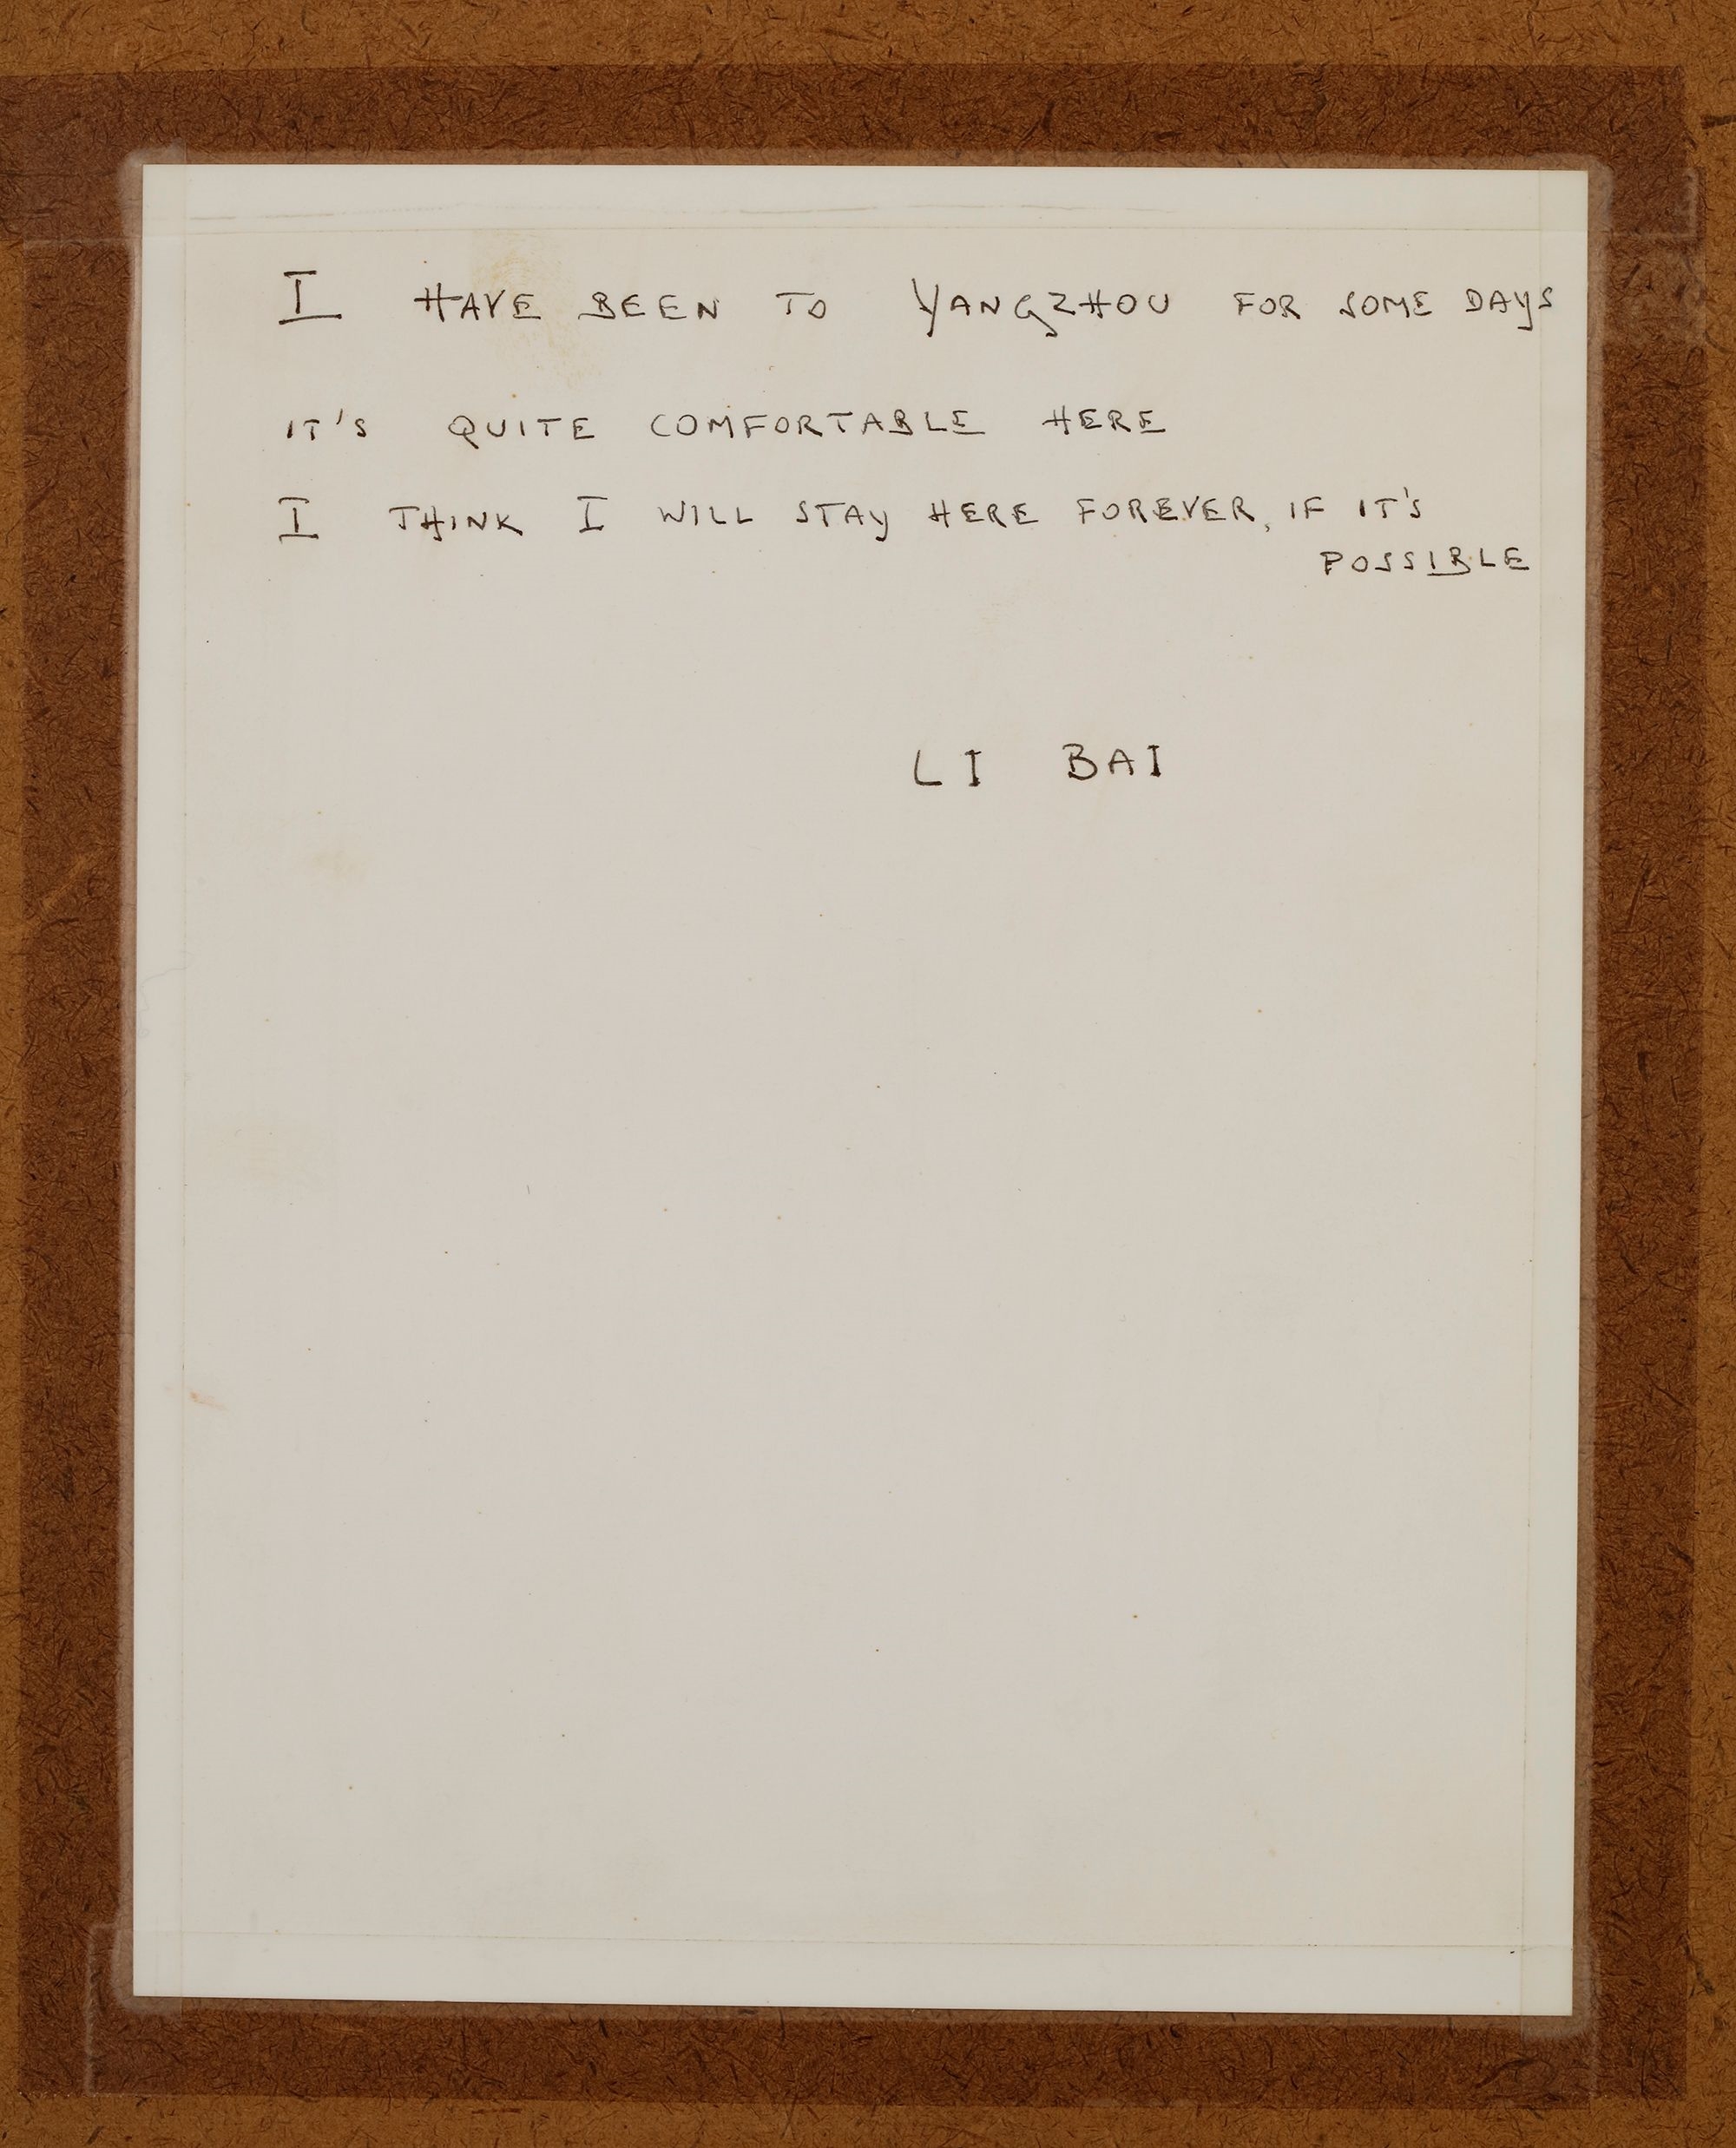 I HAVE BEEN TO YANGZHOU FOR SOME DAYS
IT'S QUITE COMFORTABLE HERE
I THINK I WILL STAY HERE FOREVER, IF IT'S
POSSIBLE
LI BAI